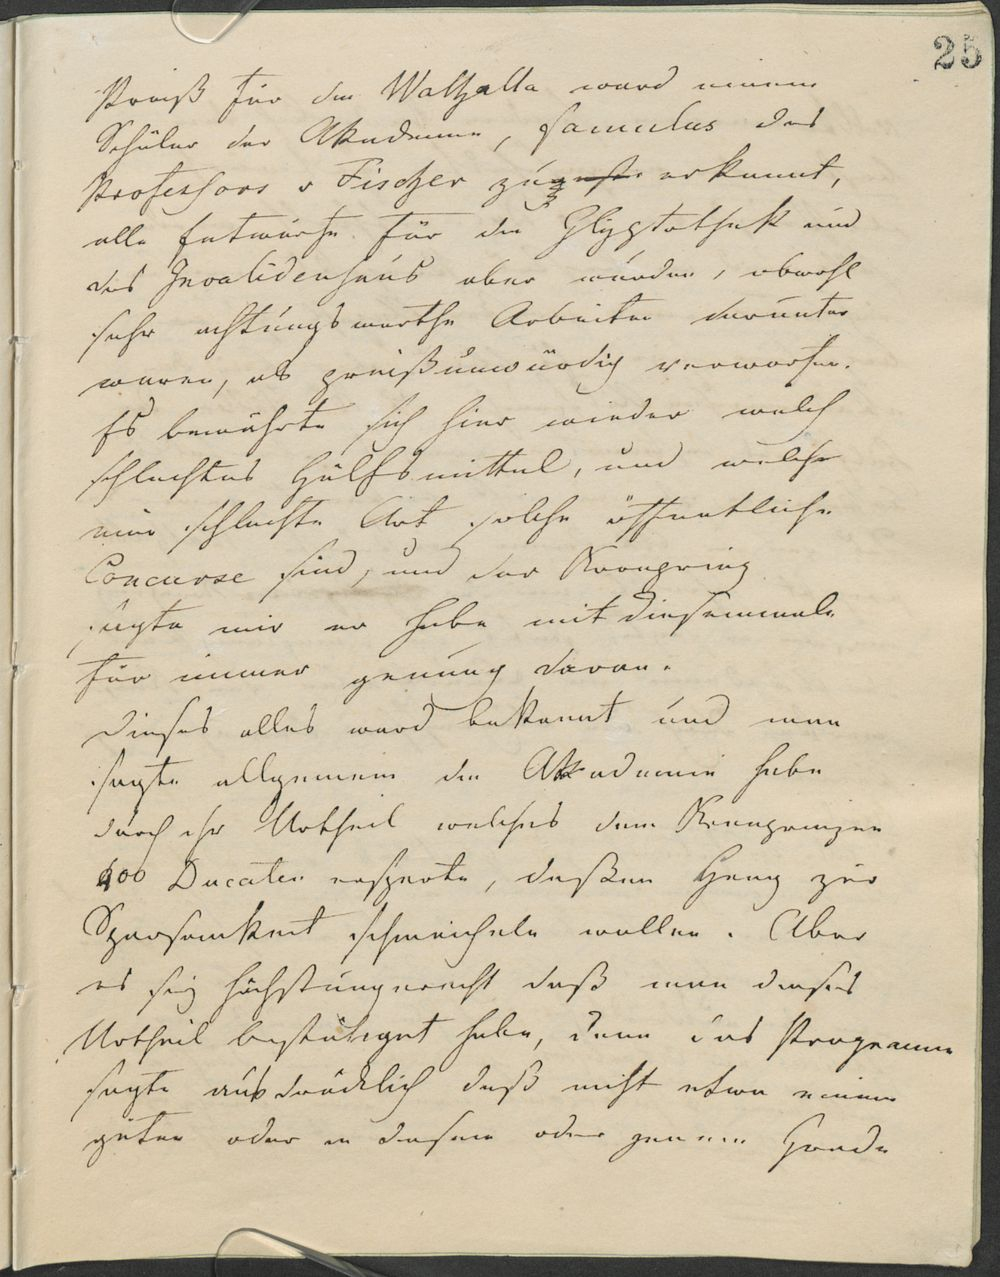 25
Preiß für die Walhalla ward einem
Schüler der Akademie, famulus des
Professors v Fischer zu erkannt,
alle Entwürfe für die Glyptothek und
das Invalidenhaus aber wurden, obwohl
sehr achtungswerthe Arbeiten darunter
waren, als preißunwürdig verworfen.
Es bewährte sich hier wieder welch
schlechtes Hülfsmittel, und welche
eine schlechte Art solche öffentliche
Concurse sind, und der Kronprinz
sagte mir er habe mit diesemmale
für immer genung davon.
Dieses alles ward bekannt und man
sagte allgemein die Akademie habe
durch ihr Urtheil welches dem Kronprinzen
600 Ducaten ersparte, deßen Hang zur
Sparsamkeit schmeicheln wollen. Aber
es sey höchst ungerecht daß man dieses
Urtheil bestätiget habe, denn das Programm
sagte ausdrücklich daß nicht etwa einem
guten oder in diesem oder jenem Grade